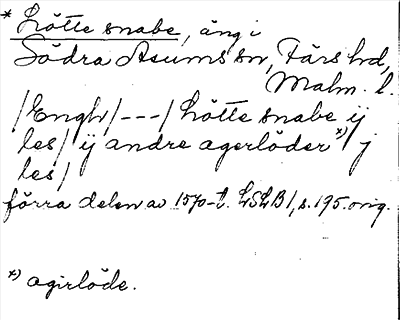 * Lötte snabe, äng i
Södra Åsums sn, Färs hd,
Malm. l.
/Enghr/ - - - / Lötte snabe ij
les/ ij andre agerlöder *) j
les/
förra delen av 1570-t. LSLB 1, s. 195. orig.
*) agirlöde.